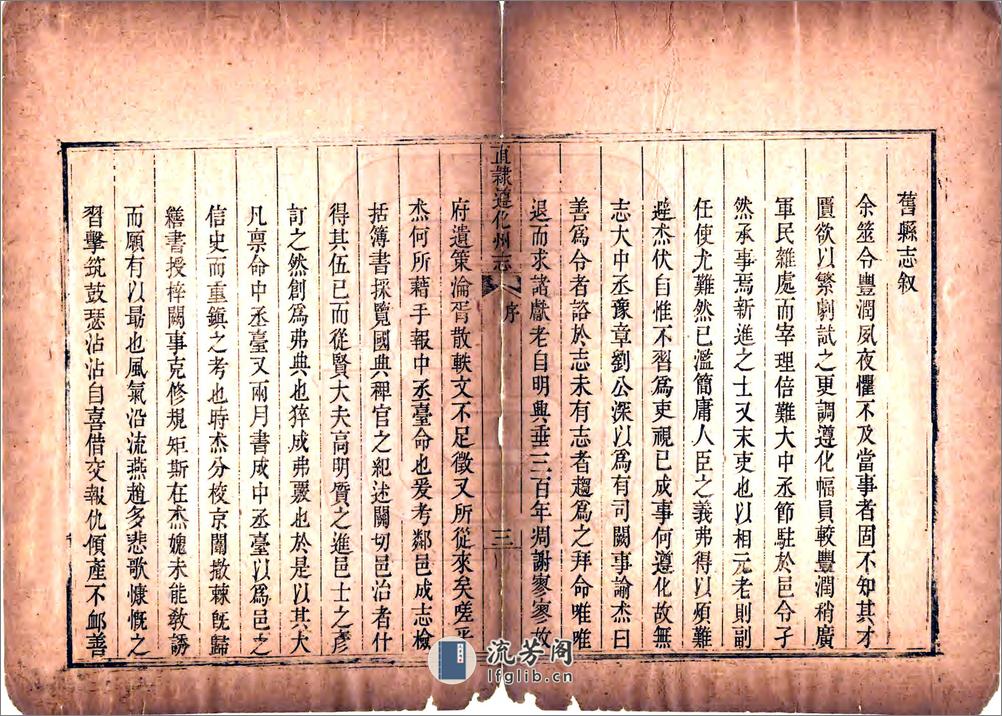 舊縣志叙
余筮令豐潤夙夜懼不及當事者固不知其才
匱欲以繁劇試之更調遵化幅員較豐潤稍廣
軍民雜處而宰理倍難大中丞節駐於邑令孑
然承事焉新進之士又末吏也以相元老則副
任使尤難然已濫簡庸人臣之義弗得以煩難
避杰伏自惟不習爲吏視已成事何遵化故無
志大中丞豫章劉公深以爲有司闕事諭杰曰
善爲令者諮於志未有志者趨爲之拜命唯唯
退而求諸獻老自明興垂三百年凋謝寥寥故
直隸遵化州志
序
三
府遺策淪胥散軼文不足徵又所從來矣嗟乎
杰何所藉手報中丞臺命也爰考鄰邑成志檢
括簿書採覽國典稗官之紀述關切邑治者什
得其伍已而從賢大夫高明質之進邑士之彥
訂之然創爲弗典也猝成弗覈也於是以其大
凡禀命中丞臺又兩月書成中丞臺以爲邑之
信史而重鎭之考也時杰分校京闈撤棘旣歸
繕書授梓闕事克修規矩斯在杰媿未能敎誘
而願有以勗也風氣沿流燕趙多悲歌慷慨之
習擊筑鼓瑟沾沾自喜借交報仇傾產不䘏善
流芳阁
lfglib.cn